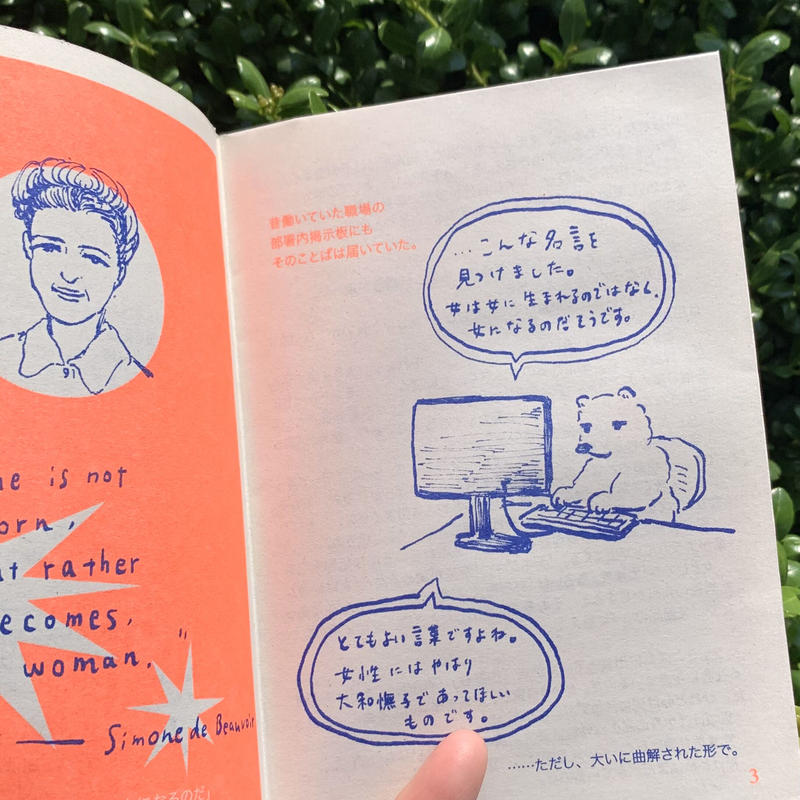 is not
rather
woman."
— Simone de Beauvoir
になるのだ」
昔働いていた職場の
部署内掲示板にも
そのことばは届いていた。
…こんな名言を
見つけました。
女は女に生まれるのではなく、
女になるのだそうです。
とてもよい言葉ですよね。
女性にはやはり
大和撫子であってほしい
ものです。
……ただし、大いに曲解された形で。
3